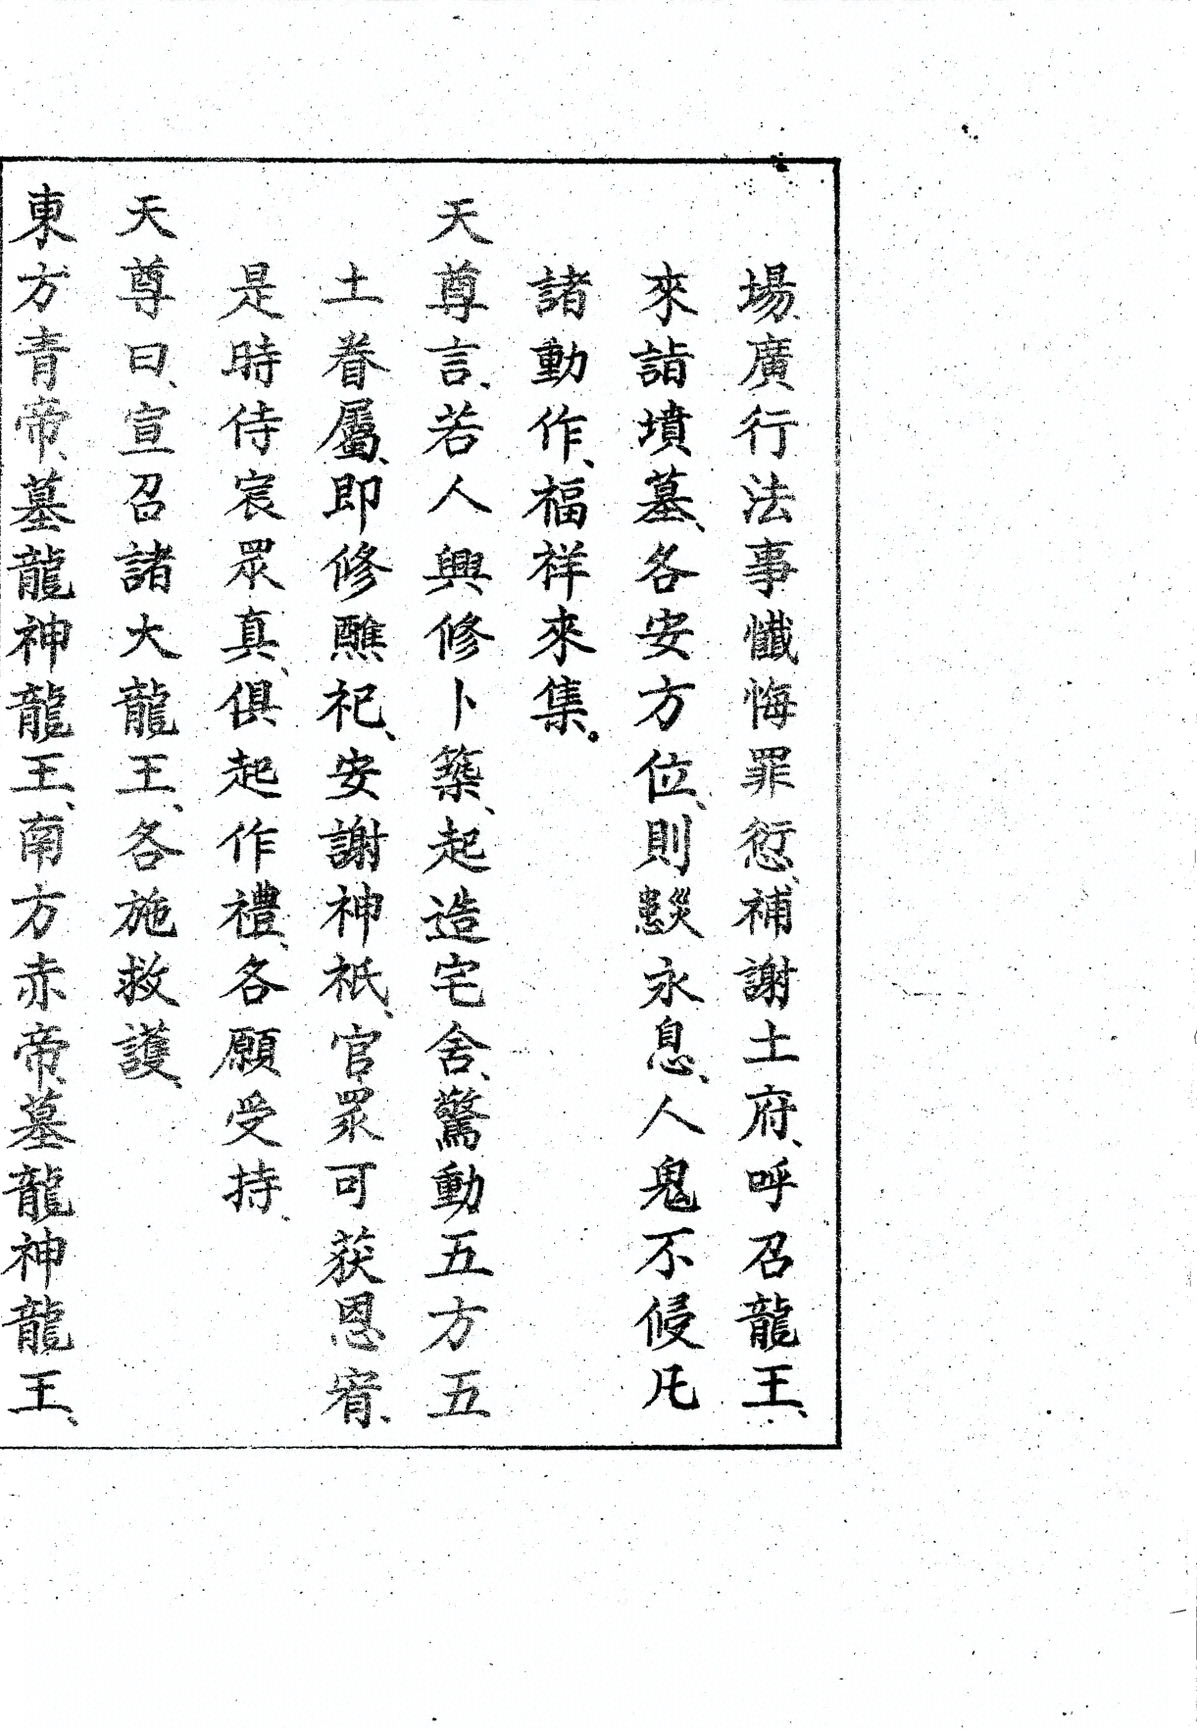 場廣行法事懺悔罪愆、補謝土府、呼召龍王、
來詣墳墓、各安方位、則災永息、人鬼不侵凡
諸動作、福祥來集。
天尊言、若人興修卜築、起造宅舍、驚動五方五
土眷屬、即修醮祀、安謝神祇、官眾可获恩宥、
是時侍宸眾真、俱起作禮、各願受持、
天尊曰、宣召諸大龍王、各施救護、
東方青帝、墓龍神龍王、南方赤帝、墓龍神龍王、